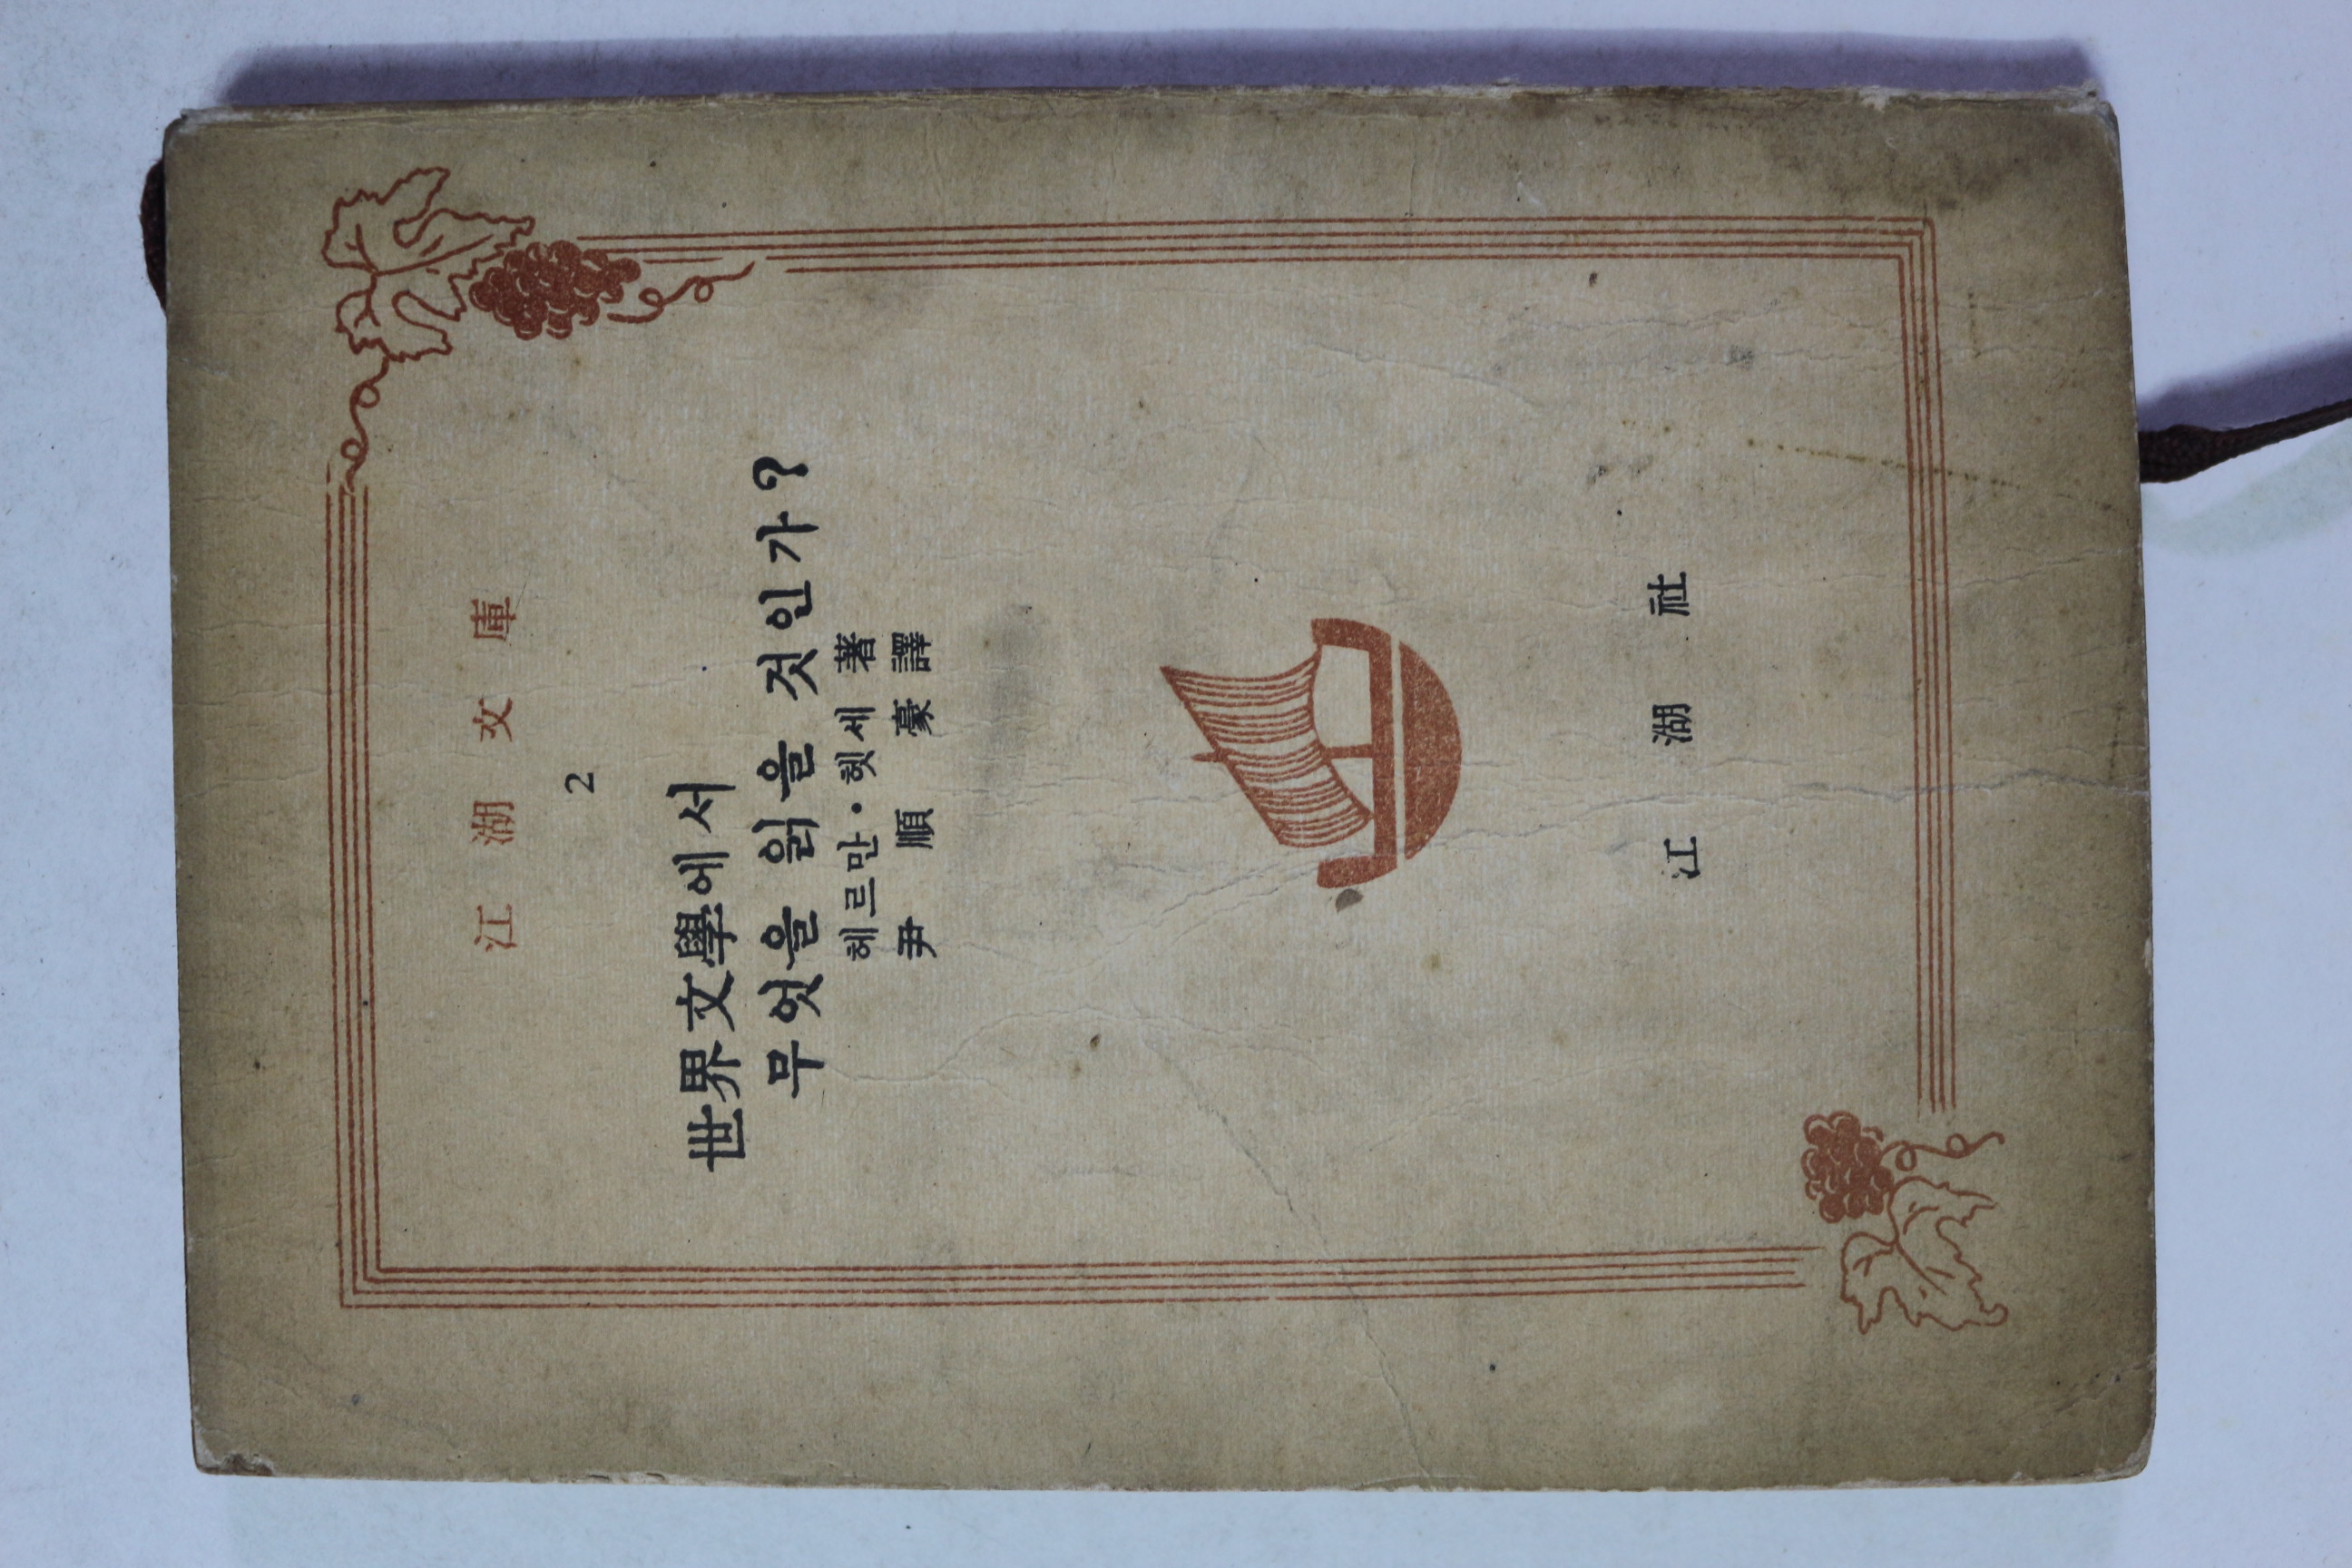 江湖文庫
2
世界文學에서
무엇을 읽을 것인가?
헤르만·헷세 著
尹順豪 譯
江湖社